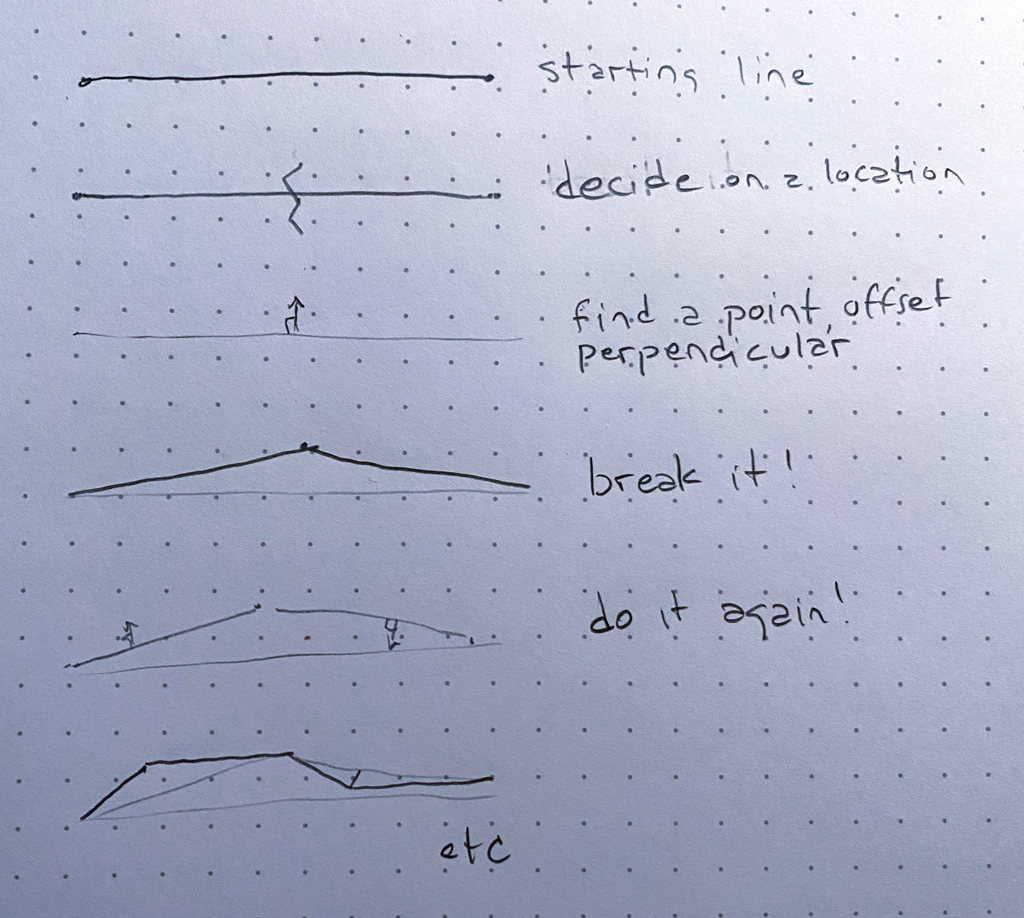 starting line
decide on a location
find a point, offset
perpendicular
break it!
do it again!
etc